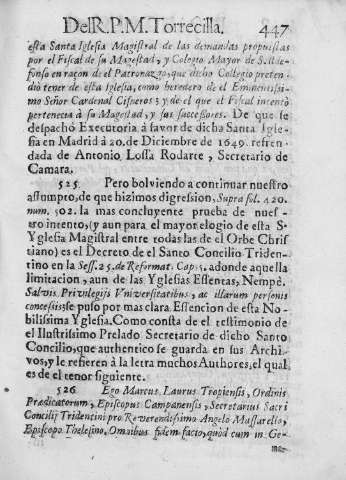 Del R. P. M. Torrecilla. 447
esta Santa Iglesia Magistral de las demandas propuestas
por el Fiscal de su Magestad, y Colegio Mayor de S. Ilde-
fonso en raçon de el Patronazgo, que dicho Collegio preten-
diò tener de esta Iglesia, como heredero de el Eminentissi-
mo Señor Cardenal Cisneros; y de el que el Fiscal intentò
pertenecia à su Magestad, y sus successores. De que se
despachò Executoria à favor de dicha Santa Igle-
sia en Madrid à 20. de Diciembre de 1649. refren-
dada de Antonio Lossa Rodarte, Secretario de
Camara.
525. Pero bolviendo a continuar nuestro
assumpto, de que hizimos digression, Supra fol. 420.
num. 502. la mas concluyente prueba de nues-
tro intento, (y aun para el mayor elogio de esta S.
Yglesia Magistral entre todas las de el Orbe Chris-
tiano) es el Decreto de el Santo Concilio Triden-
tino en la Sess. 25. de Reformat. Cap. 6. adonde aquella
limitacion, aun de las Yglesias Essentas, Nempè.
Salvis Privilegijs Vniversitatibus, ac illarum personis
concessis; se puso por mas clara Essencion de esta No-
bilissima Yglesia. Como consta de el testimonio de
el Illustrissimo Prelado Secretario de dicho Santo
Concilio, que authentico se guarda en sus Archi-
vos, y le refieren à la letra muchos Authores, el qual
es de el tenor siguiente.
526. Ego Marcus Laurus Tropiensis, Ordinis
Prædicatorum, Episcopus Campanensis, Secretarius Sacri
Concilij Tridentini pro Reverendissimo Angelo Massarello,
Episcopo Thelesino, Omnibus fidem facio, quòd cum in Ge-